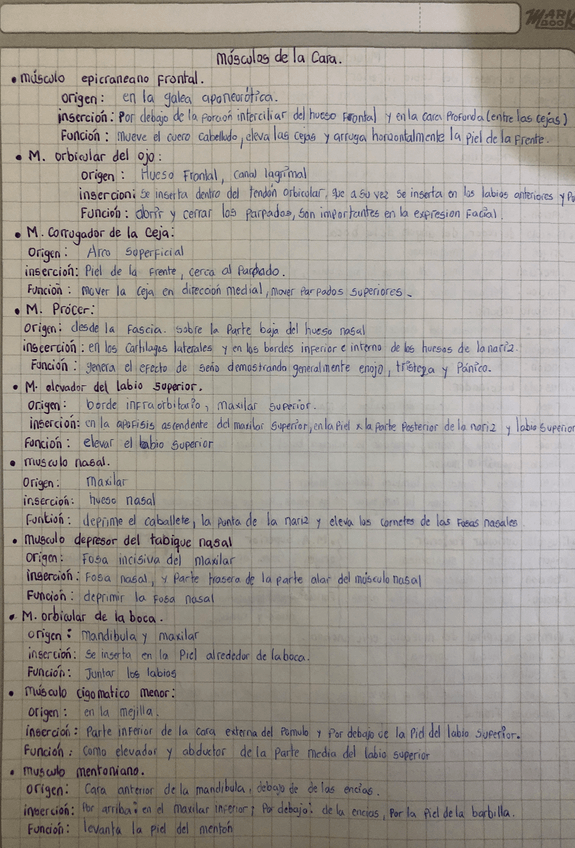 MARK
BOOK
Músculos de la Cara.
• músculo epicraneano frontal.
origen: en la galea aponeurótica.
inserción: Por debajo de la porción interciliar del hueso frontal y en la cara profunda (entre las cejas)
Función: mueve el cuero cabelludo, eleva las cejas y arruga horizontalmente la piel de la frente.
• M. orbicular del ojo:
origen: Hueso Frontal, canal lagrimal
inserción: se inserta dentro del tendón orbicular, que a su vez se inserta en los labios anteriores y Po
Función: abrir y cerrar los parpados, son importantes en la expresion facial.
• M. Corrugador de la Ceja:
Origen: Arco superficial
inserción: Piel de la frente, cerca al Parpado.
Función: mover la ceja en dirección medial, mover parpados superiores.
• M. Prócer:
Origen: desde la Fascia. sobre la Parte baja del hueso nasal
inscerción: en los cartilagos laterales y en los bordes inferior e interno de los huesos de la nariz.
Función: genera el efecto de seño demostrando generalmente enojo, tristeza y Pánico.
• M. elevador del labio superior.
Origen: borde infraorbitario, maxilar superior.
inserción: en la apofisis ascendente del maxilar superior, en la Piel x la Parte Posterior de la nariz y labio superior
Función: elevar el labio superior
• musculo nasal.
Origen: maxilar
inserción: hueso nasal
Función: deprime el caballete, la punta de la nariz y eleva los cornetes de las fosas nasales
• musculo depresor del tabique nasal
Origen: Fosa incisiva del maxilar
inserción: Fosa nasal, y Parte trasera de la parte alar del músculo nasal
Función: deprimir la fosa nasal
• M. orbicular de la boca.
origen: mandibula y maxilar
inserción: se inserta en la Piel alrededor de la boca.
Función: Juntar los labios
• músculo cigomatico menor:
origen: en la mejilla.
inserción: Parte inferior de la cara externa del Pómulo y Por debajo de la Piel del labio superior.
Función: Como elevador y abductor de la Parte media del labio superior
• musculo mentoniano.
Origen: Cara anterior de la mandibula, debajo de de las encias.
inserción: Por arriba: en el maxilar inferior; Por debajo: de la encias, Por la piel de la barbilla.
Función: levanta la piel del mentón